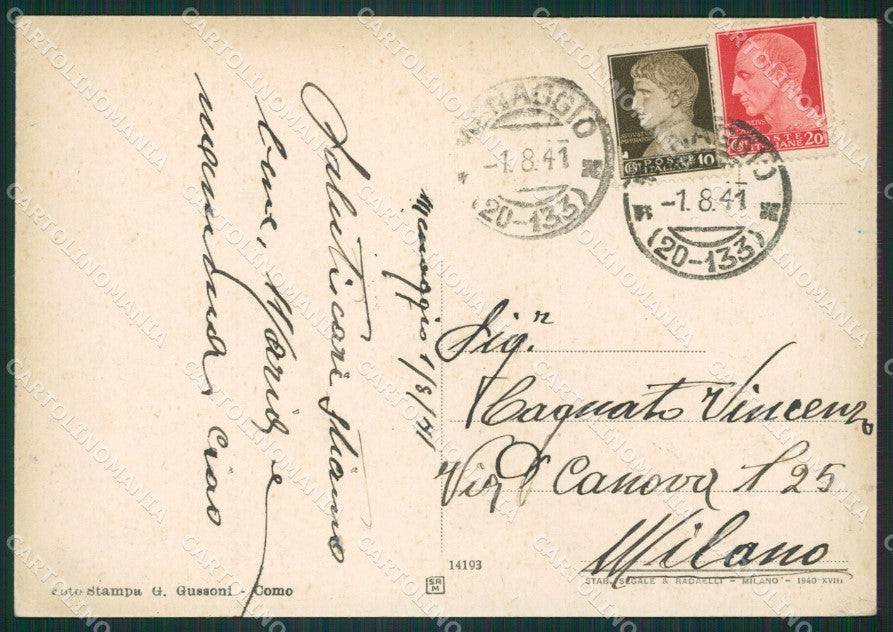 Menaggio 1/8/41
Saluti cari stiamo
bene, Maria e
mamma, ciao
MENAGGIO
-1.8.41
(20-133)
-1.8.41
(20-133)
POSTE
ITALIANE 10
POSTE
ITALIANE 20
Sig.r
Cagnato Vincenzo
Via Canova 25
Milano
14193
SR
M
Foto Stampa G. Gussoni - Como
STAB. SEGALE & RADAELLI - MILANO - 1940-XVIII
CARTOLINOMANIA